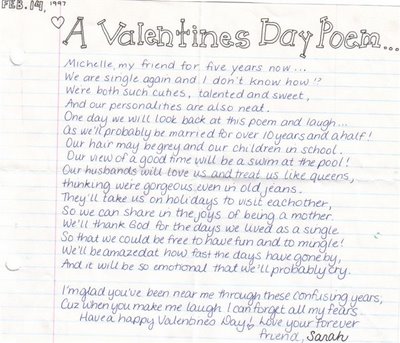 FEB. 14, 1997
A Valentines Day Poem...
Michelle, my friend for five years now...
We are single again and I don't know how!?
Were both such cuties, talented and sweet,
And our personalities are also neat.
One day we will look back at this poem and laugh...
As we'll probably be married for over 10 years and a half!
Our hair may be grey and our children in school.
Our view of a good time will be a swim at the pool!
Our husbands will love us and treat us like queens,
thinking were gorgeous even in old jeans.
They'll take us on holidays to visit eachother,
So we can share in the joys of being a mother.
We'll thank God for the days we lived as a single
So that we could be free to have fun and to mingle!
We'll be amazed at how fast the days have gone by,
And it will be so emotional that we'll probably cry.
I'm glad you've been near me through these confusing years,
Cuz when you make me laugh I can forget all my fears.
Have a happy Valentines Day! Love your forever
friend, Sarah